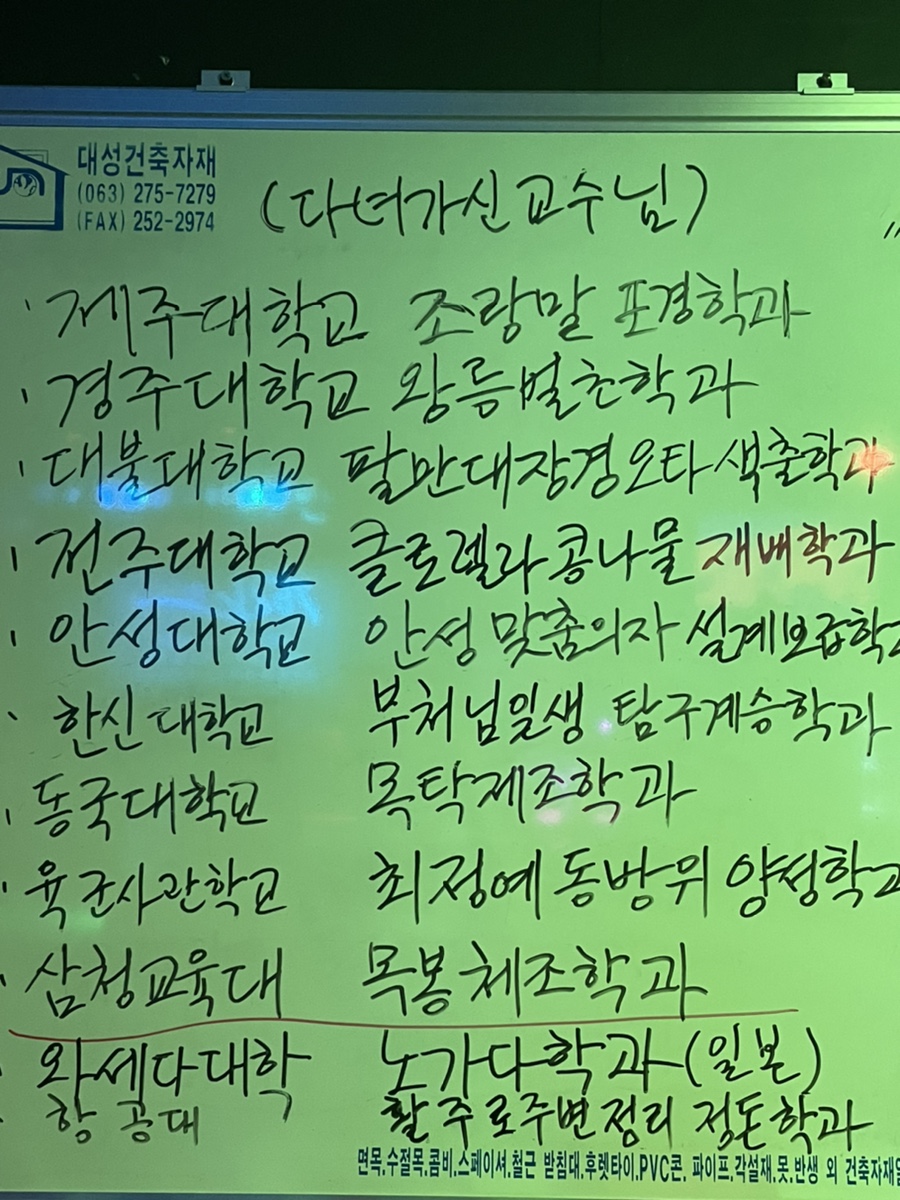 대성건축자재
(063) 275-7279
(FAX) 252-2974
(다녀가신교수님)
제주대학교 조랑말 포경학과
경주대학교 왕릉벌초학과
대불대학교 팔만대장경오타색출학과
전주대학교 클로렐라콩나물 재배학과
안성대학교 안성맞춤의자 설계보급학과
한신대학교 부처님일생 탐구계승학과
동국대학교 목탁제조학과
육군사관학교 최정예동방위 양성학과
삼청교육대 목봉체조학과
와세다대학 노가다학과(일본)
항공대 활주로주변정리 정돈학과
면목,수절목,콤비,스페이셔,철근 받침대,후렛타이,PVC콘, 파이프,각설재,못,반생 외 건축자재일